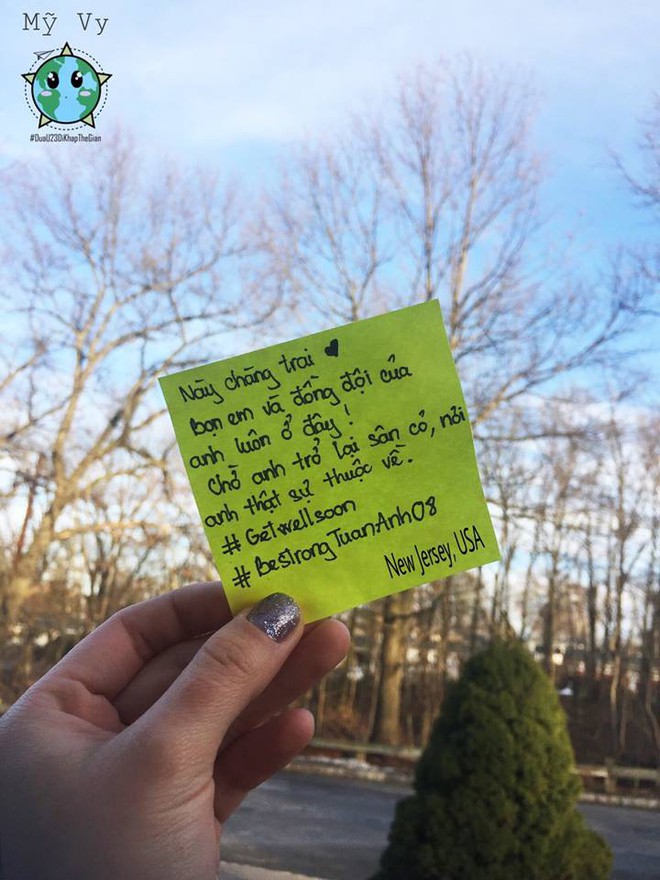 Mỹ Vy
#DuaU23DiKhapTheGian
Này chàng trai ♥
Bọn em và đồng đội của
anh luôn ở đây!
Chờ anh trở lại sân cỏ, nơi
anh thật sự thuộc về.
#Getwellsoon
#BestrongTuanAnh08
New Jersey, USA